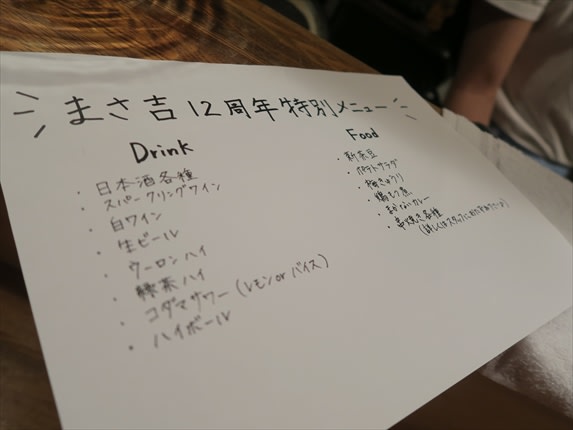 まさ吉12周年特別メニュー
Drink
・日本酒各種
・スパークリングワイン
・白ワイン
・生ビール
・ウーロンハイ
・緑茶ハイ
・コダマサワー(レモン or バイス)
・ハイボール
Food
・新茶豆
・ポテトサラダ
・梅きゅうり
・鶏もつ煮
・まかないカレー
・串焼き各種
(詳しくはスタッフに